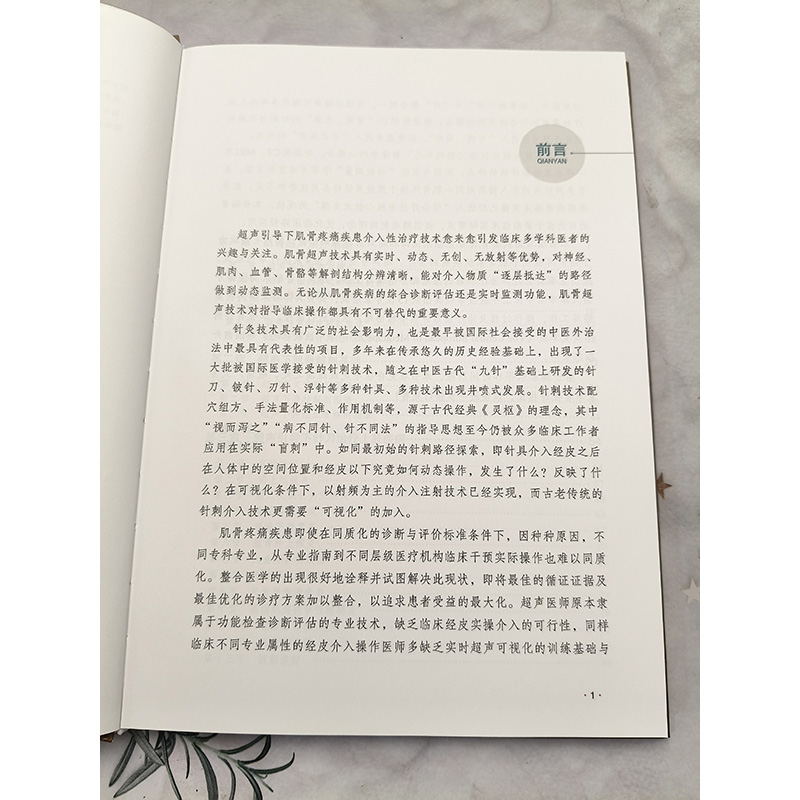 前言
QIANYAN
超声引导下肌骨疼痛疾患介入性治疗技术愈来愈引发临床多学科医者的
兴趣与关注。肌骨超声技术具有实时、动态、无创、无放射等优势，对神经、
肌肉、血管、骨骼等解剖结构分辨清晰，能对介入物质“逐层抵达”的路径
做到动态监测。无论从肌骨疾病的综合诊断评估还是实时监测功能，肌骨超
声技术对指导临床操作都具有不可替代的重要意义。
针灸技术具有广泛的社会影响力，也是最早被国际社会接受的中医外治
法中最具有代表性的项目，多年来在传承悠久的历史经验基础上，出现了一
大批被国际医学接受的针刺技术，随之在中医古代“九针”基础上研发的针
刀、铍针、刃针、浮针等多种针具、多种技术出现井喷式发展。针刺技术配
穴组方、手法量化标准、作用机制等，源于古代经典《灵枢》的理念，其中
“视而泻之”“病不同针、针不同法”的指导思想至今仍被众多临床工作者
应用在实际“盲刺”中。如同最初始的针刺路径探索，即针具介入经皮之后
在人体中的空间位置和经皮以下究竟如何动态操作，发生了什么？反映了什
么？在可视化条件下，以射频为主的介入注射技术已经实现，而古老传统的
针刺介入技术更需要“可视化”的加入。
肌骨疼痛疾患即使在同质化的诊断与评价标准条件下，因种种原因，不
同专科专业，从专业指南到不同层级医疗机构临床干预实际操作也难以同质
化。整合医学的出现很好地诠释并试图解决此现状，即将最佳的循证证据及
最佳优化的诊疗方案加以整合，以追求患者受益的最大化。超声医师原本隶
属于功能检查诊断评估的专业技术，缺乏临床经皮实操介入的可行性，同样
临床不同专业属性的经皮介入操作医师多缺乏实时超声可视化的训练基础与
·1·